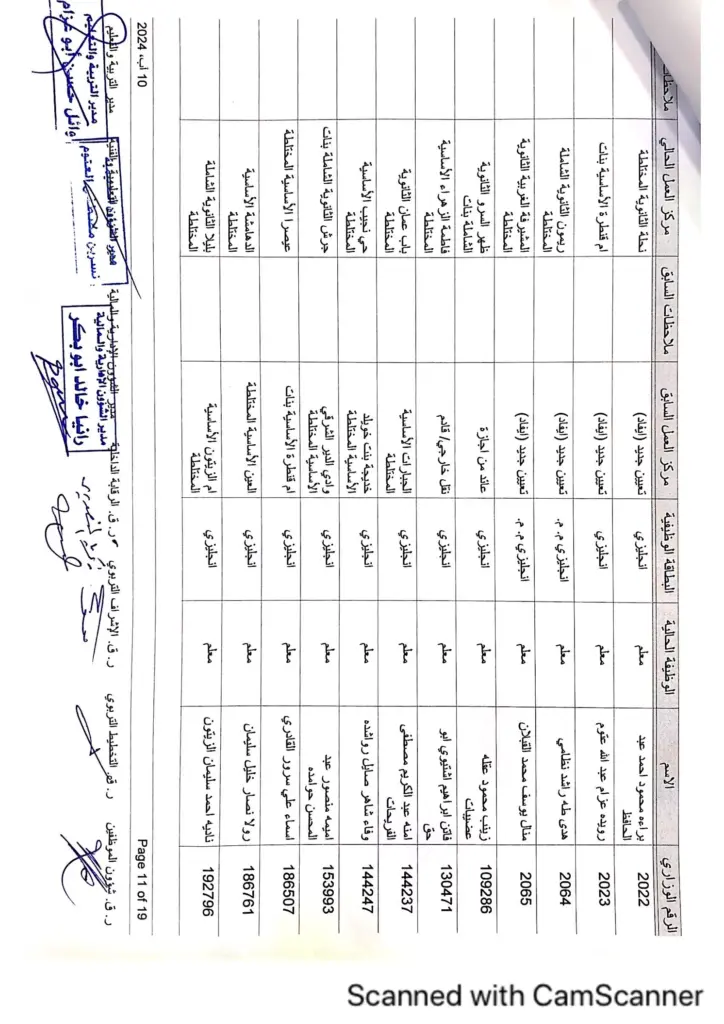 الرقم الوزاري الاسم الوظيفة الحالية البطاقة الوظيفية مركز العمل السابق ملاحظات السابق مركز العمل الحالي ملاحظات
2022 براءه محمود احمد عبد الحافظ معلم انجليزي تعيين جديد (ايفاد) نحلة الثانوية المختلطة
2023 رويده عزام عبد الله عتوم معلم انجليزي تعيين جديد (ايفاد) ام قنطرة الأساسية بنات
2064 هدى طه راشد نظامي معلم انجليزي م. م. تعيين جديد (ايفاد) ريمون الثانوية الشاملة المختلطة
2065 منال يوسف محمد القبلان معلم انجليزي م. م. تعيين جديد (ايفاد) المشيرفة الغربية الثانوية المختلطة
109286 زينب محمود عقله عضيبات معلم انجليزي عائد من اجازة ظهر السرو الثانوية الشاملة بنات
130471 فاتن ابراهيم اشتيوي ابو حق معلم انجليزي نقل خارجي/ قادم فاطمة الزهراء الأساسية المختلطة
144237 امنه عبد الكريم مصطفى الفريحات معلم انجليزي الجبارات الأساسية المختلطة باب عمان الثانوية المختلطة
144247 وفاء شاهر صايل رواشده معلم انجليزي خديجة بنت خويلد الأساسية المختلطة حي نجيب الأساسية المختلطة
153993 اميمه منصور عبد المحسن حوامده معلم انجليزي وادي الدير الشرقي الأساسية المختلطة جرش الثانوية الشاملة بنات
186507 اسماء علي سرور القادري معلم انجليزي ام قنطرة الأساسية بنات عيصرا الأساسية المختلطة
186761 رولا نصار خليل سليمان معلم انجليزي العين الأساسية المختلطة الدهامشة الأساسية المختلطة
192796 ناديه احمد سليمان الزيتون معلم انجليزي ام الزيتون الأساسية المختلطة بليلا الثانوية الشاملة المختلطة
Page 11 of 19
10 آب، 2024
ر. ق. شؤون الموظفين ر. ق. التخطيط التربوي ر. ق. الإشراف التربوي ر. ق. الرقابة الداخلية مدير الشؤون الإدارية والمالية مدير التربية والتعليم
مدير الشؤون الادارية والمالية
رانيا خالد ابو بكر
مدير الشؤون التعليمية والفنية
مدير التربية والتعليم
وائل حسين أبو عزام
Scanned with CamScanner